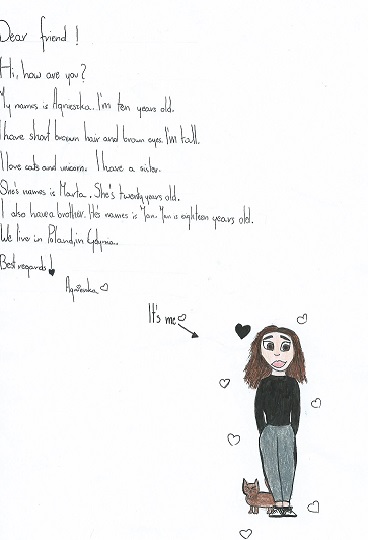 Dear friend!
Hi, how are you?
My names is Agnieszka. I'm ten years old.
I have short brown hair and brown eyes. I'm tall.
I love cats and unicorn. I have a sister.
She's names is Marta. She's twenty years old.
I also have a brother. His names is Jan. Jan is eighteen years old.
We live in Poland, in Gdynia.
Best regards!
Agnieszka
It's me